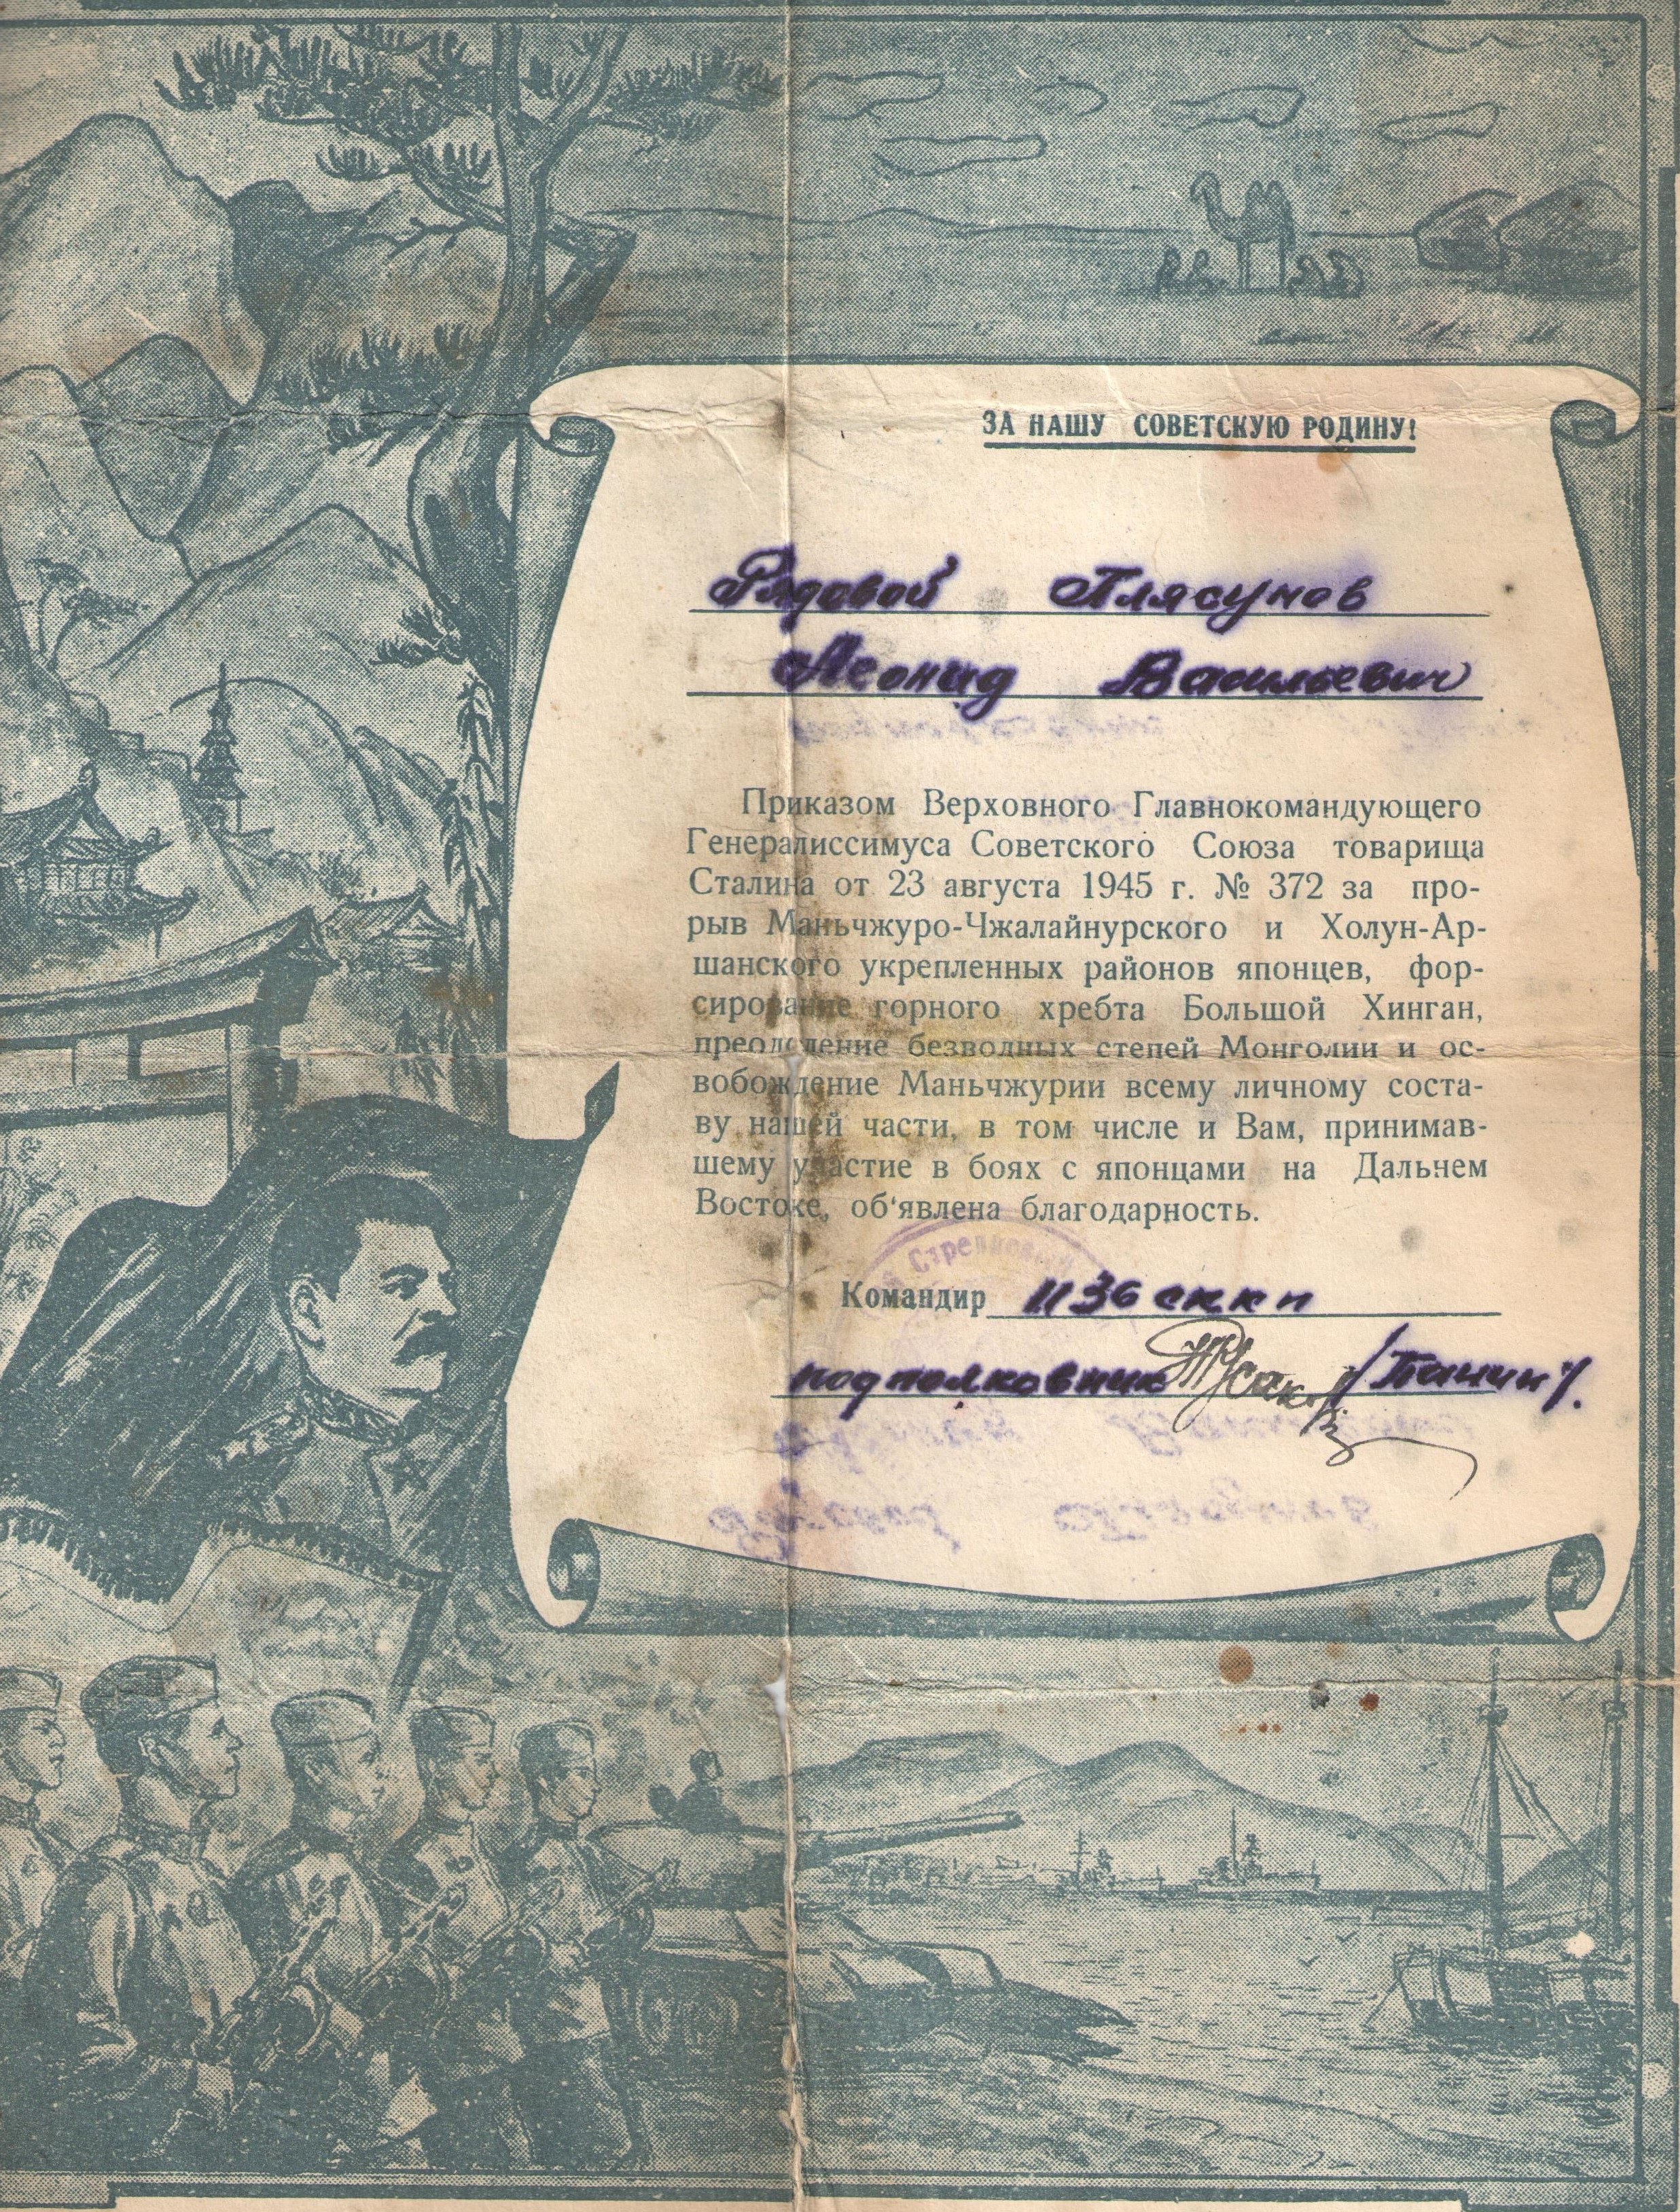 ЗА НАШУ СОВЕТСКУЮ РОДИНУ!
Рядовой Плясунов
Леонид Васильевич
Приказом Верховного Главнокомандующего
Генералиссимуса Советского Союза товарища
Сталина от 23 августа 1945 г. № 372 за про-
рыв Маньчжуро-Чжалайнурского и Холун-Ар-
шанского укрепленных районов японцев, фор-
сирование горного хребта Большой Хинган,
преодоление безводных степей Монголии и ос-
вобождение Маньчжурии всему личному соста-
ву нашей части, в том числе и Вам, принимав-
шему участие в боях с японцами на Дальнем
Востоке, об‘явлена благодарность.
Стрелковый
Командир 1136 сккп
подполковник /Панин/.